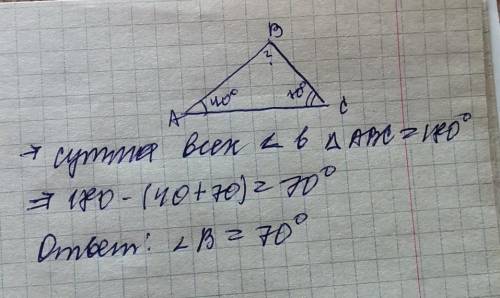 B
?
40°
70°
A
C
→ сумма всех < в △ ABC = 180°
⇒ 180 - (40+70) = 70°
Ответ: <B = 70°